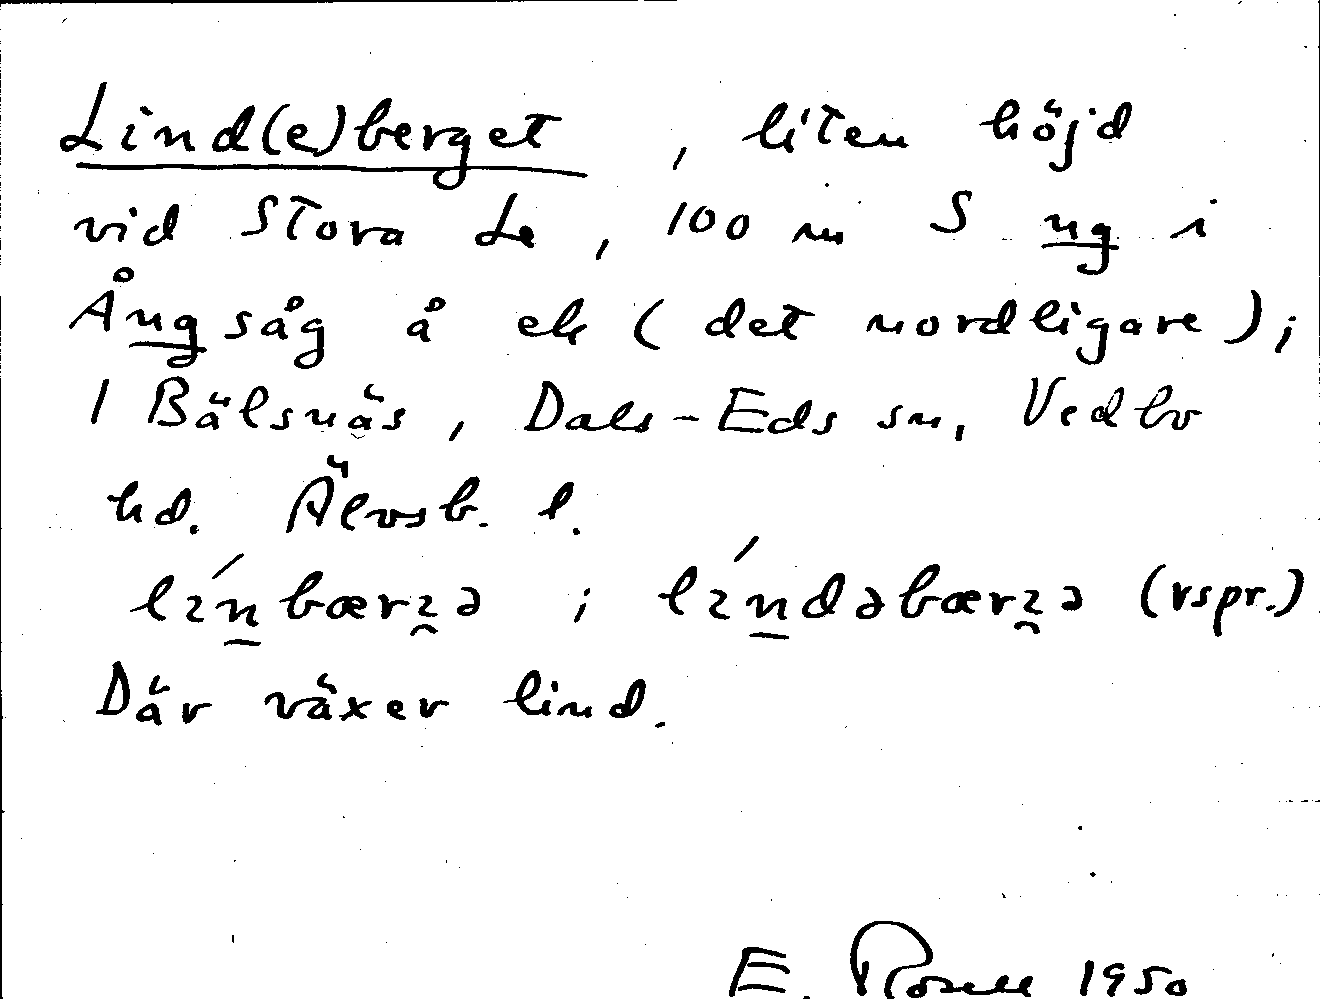 Lind(e)berget, liten höjd
vid Stora Le, 100 m S ng i
Ångsåg å ek (det nordligare);
/ Bälsnäs, Dals-Eds sn, Vedbo
hd. Älvsb. l.
lɪ́n̲bærɪ̯ə ; lɪ́n̲dəbærɪ̯ə (rspr.)
Där växer lind.
E. Rosell 1950